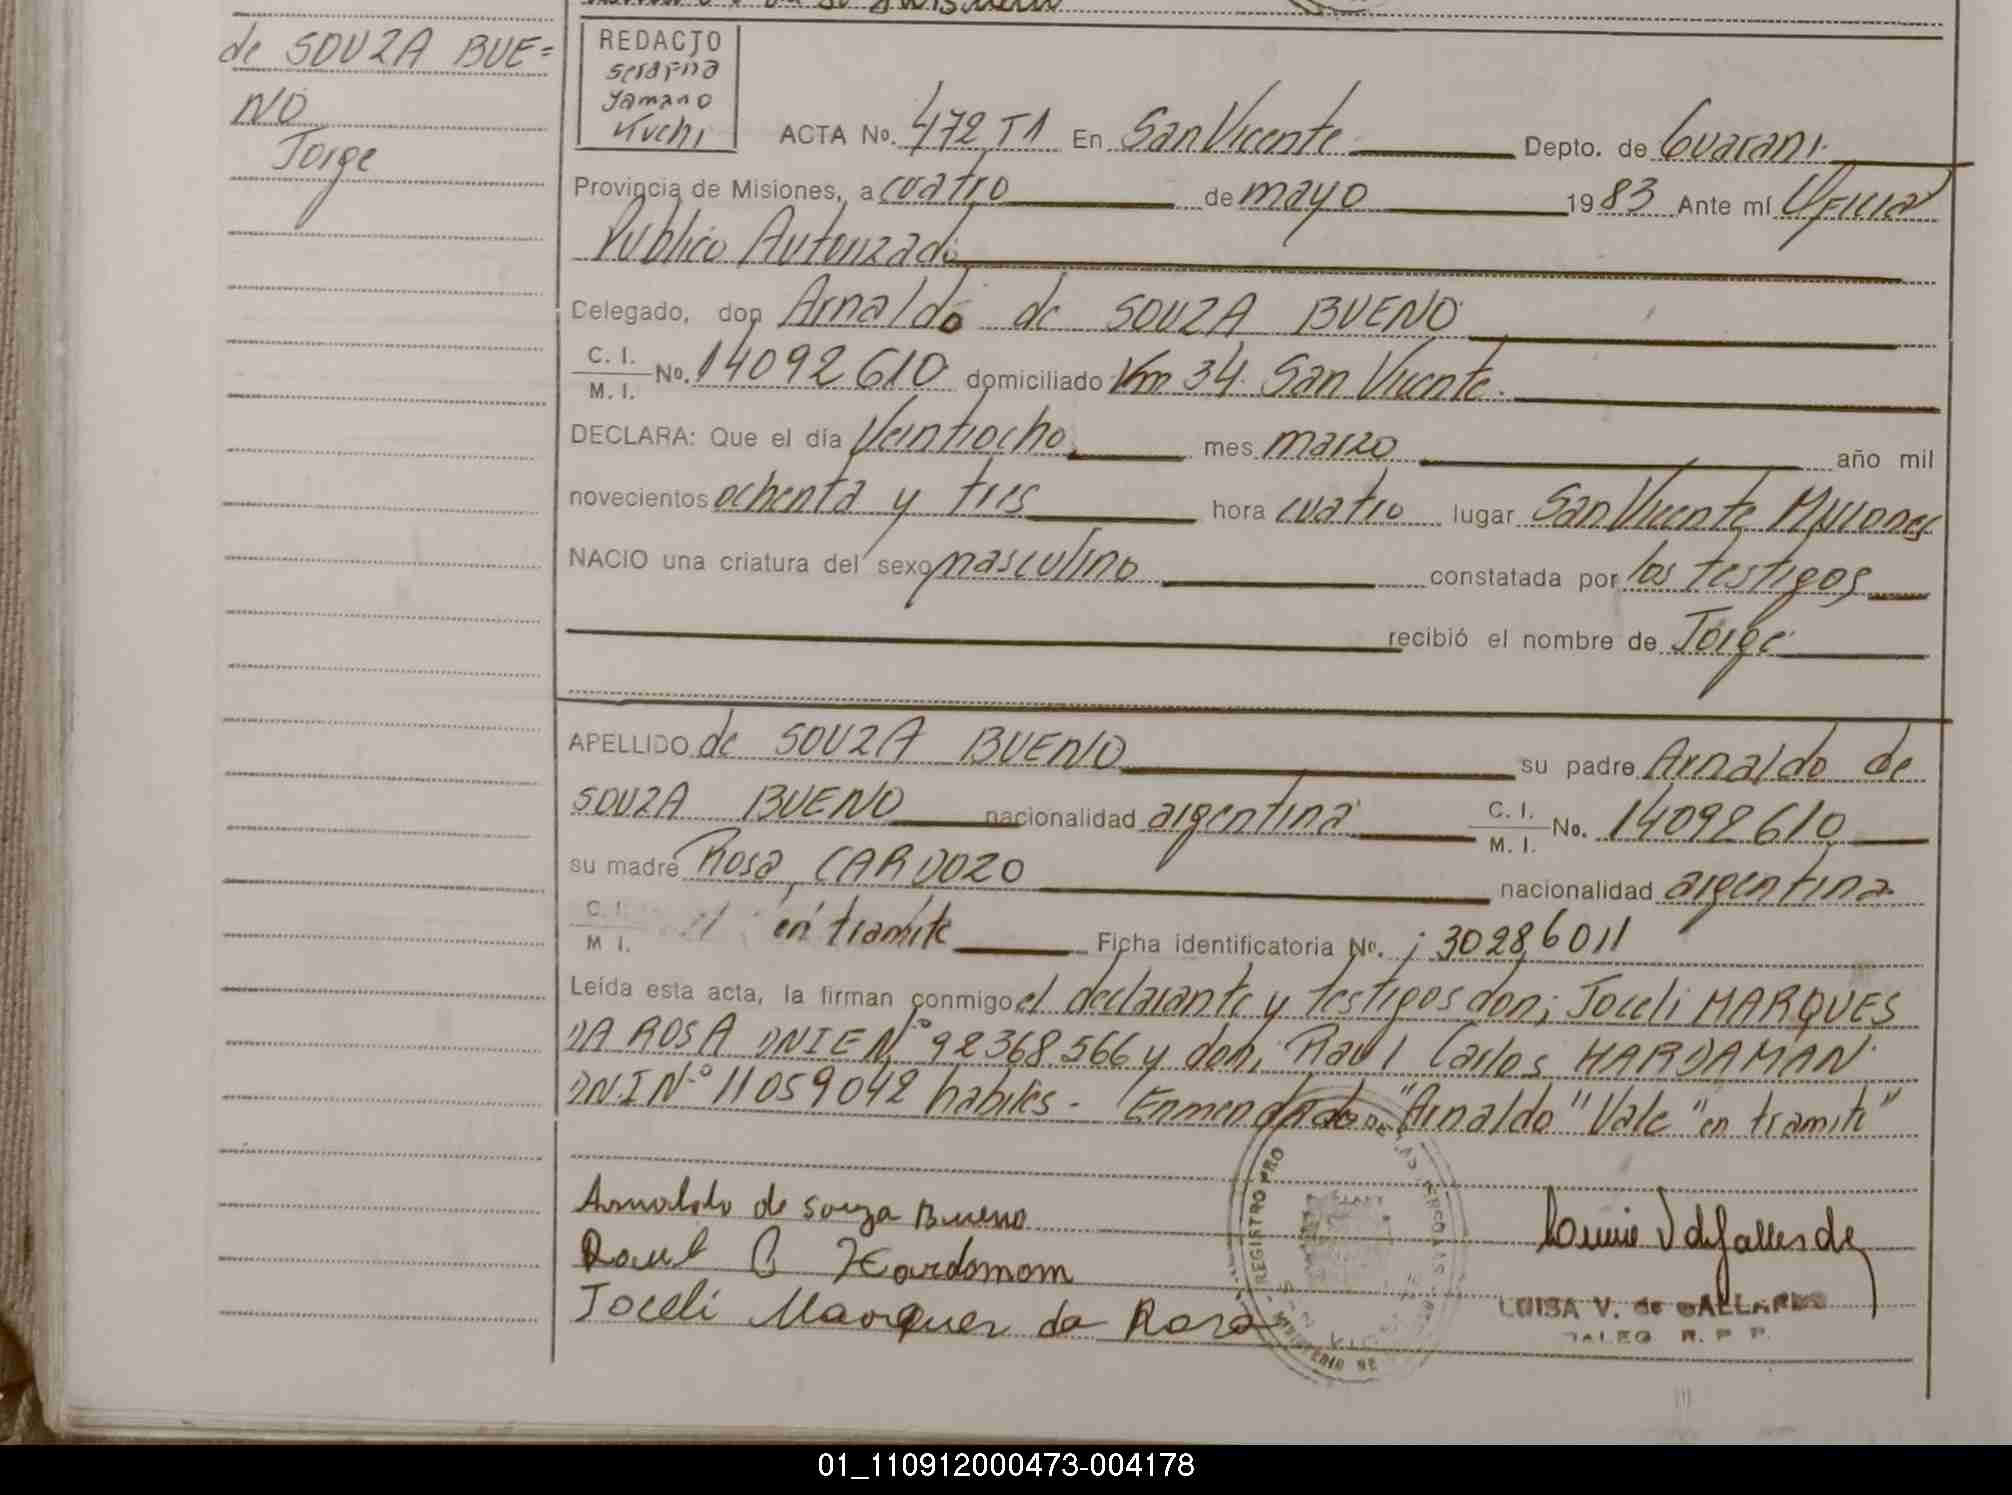 de SOUZA BUE=
NO
Jorge
REDACTO
serafina
yamano
Kuchi
ACTA No. 472 T1 En San Vicente Depto. de Guarani
Provincia de Misiones, a cuatro de mayo 1983 Ante mí Oficial
Publico Autorizado
Celegado, don Arnaldo de SOUZA BUENO
C. I.
M. I. No. 14092610 domiciliado Km 34 San Vicente.
DECLARA: Que el día Veintiocho mes marzo año mil
novecientos ochenta y tres hora cuatro lugar San Vicente Misiones
NACIO una criatura del sexo masculino constatada por los testigos
recibió el nombre de Jorge
APELLIDO de SOUZA BUENO su padre Arnaldo de
SOUZA BUENO nacionalidad argentina C. I. M. I. No. 14092610
su madre Rosa CARDOZO nacionalidad argentina
C. I. M I. en tramite Ficha identificatoria No. j 30286011
Leída esta acta, la firman conmigo el declarante y testigos don; Joceli MARQUES
DA ROSA DNIE Nº 92368566 y don; Raul Carlos HARDAMAN
DNI Nº 11059042 habiles - Enmendado "Arnaldo" Vale "en tramite"
Arnaldo de Souza Bueno
Raul C Hardamam
Joceli Marques da Rosa
LUISA V. de GALLARDO